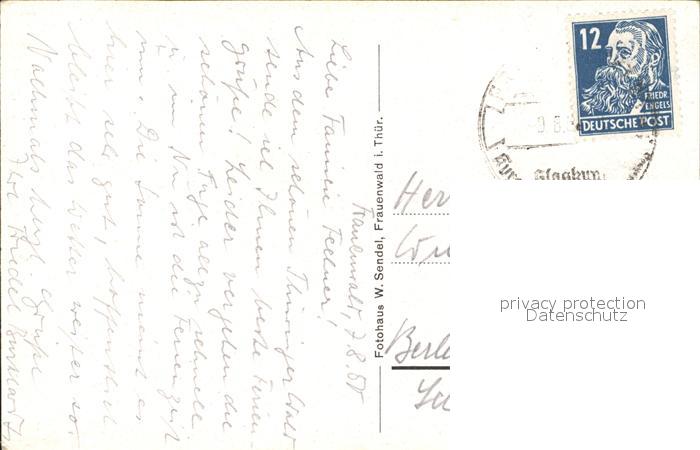 Frauenwald, 7.8.51
Liebe Familie Fellner!
Aus dem schönen Thüringer Wald
sende ich Ihnen beste Ferien-
grüße! Leider vergehen die
schönen Tage allzu schnell
u. im Nu ist die Ferienzeit
um. Die Sonne meint es
hier sehr gut, hoffentlich
bleibt das Wetter weiter so.
Nochmals herzl. Grüße
Ihre
Fotohaus W. Sendel, Frauenwald i. Thür.
12
FRIEDR.
ENGELS
DEUTSCHE POST
Her
Berl
privacy protection
Datenschutz